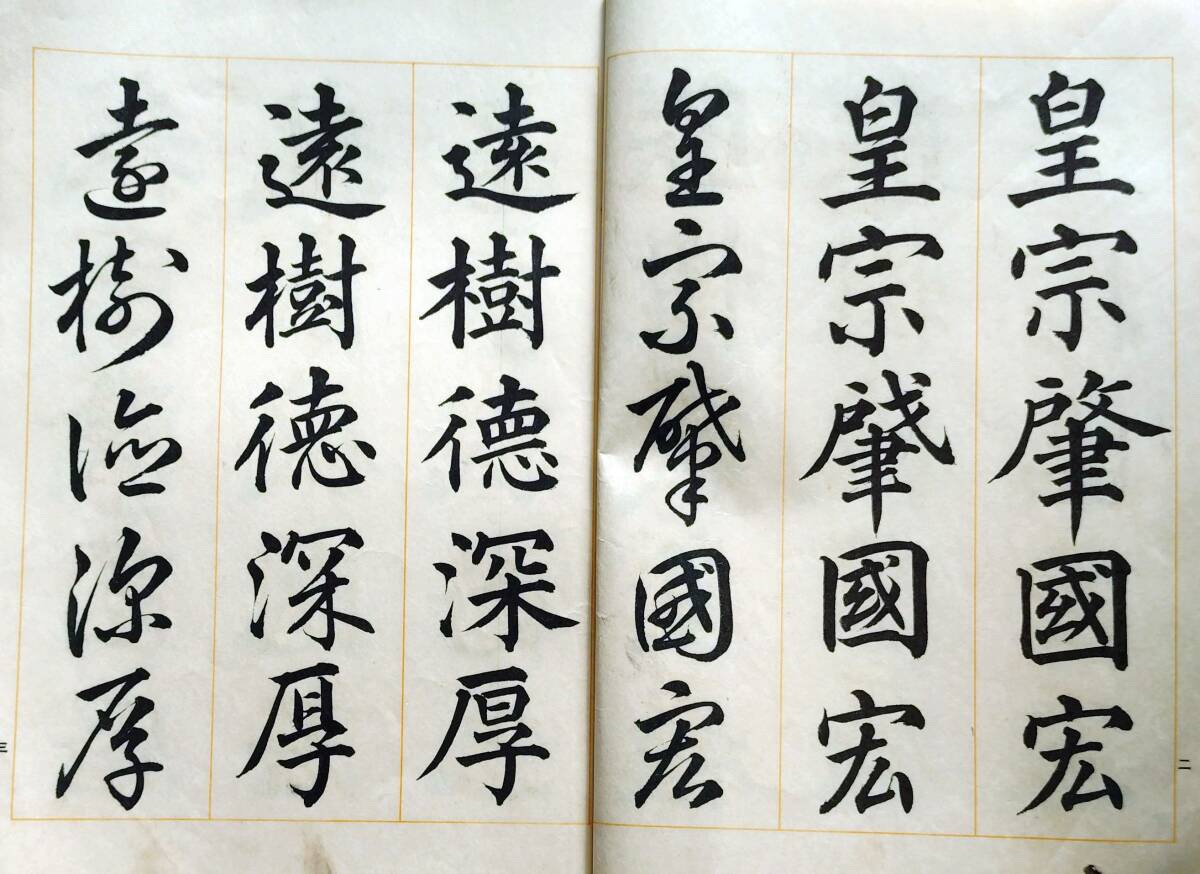 皇宗肇國宏
皇宗肇國宏
皇宗肇國宏
二
遠樹德深厚
遠樹德深厚
遠樹德深厚
三